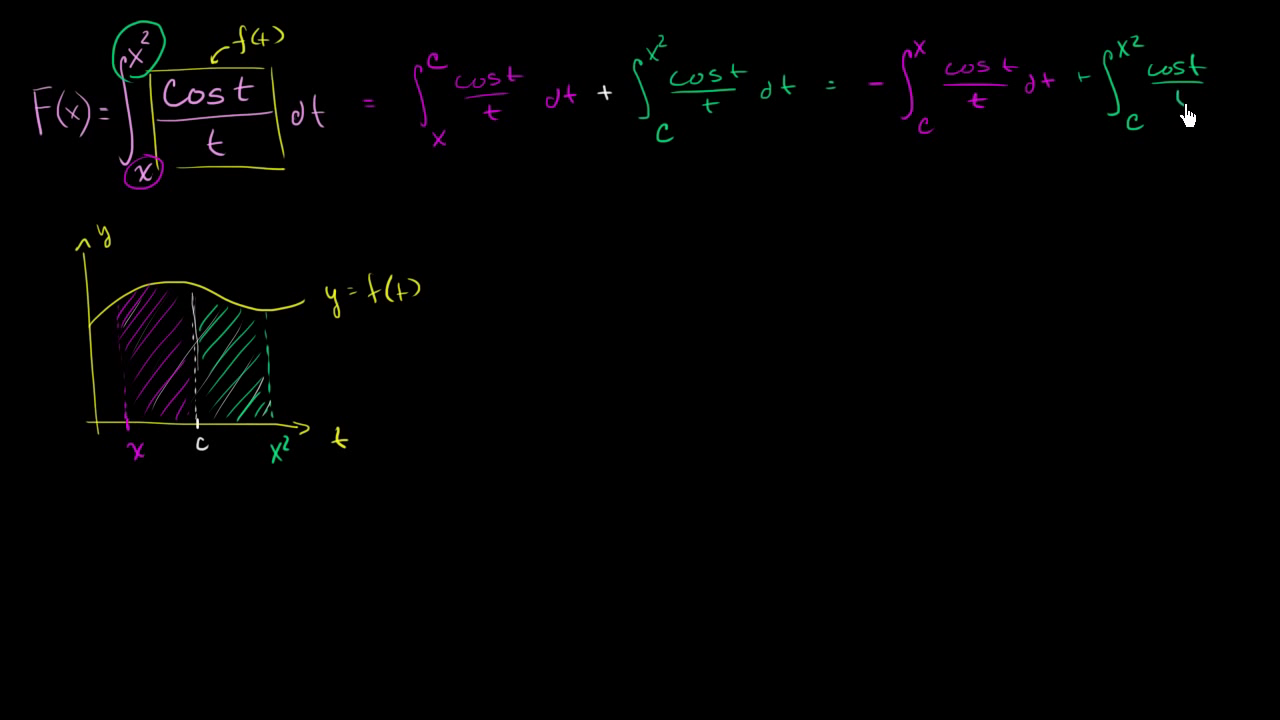 F(x) = ∫ₓ^(x²) cos t / t dt = ∫ₓ^c cos t / t dt + ∫_c^(x²) cos t / t dt = - ∫_c^x cos t / t dt + ∫_c^(x²) cos t / t
f(t)
y
y = f(t)
x c x² t